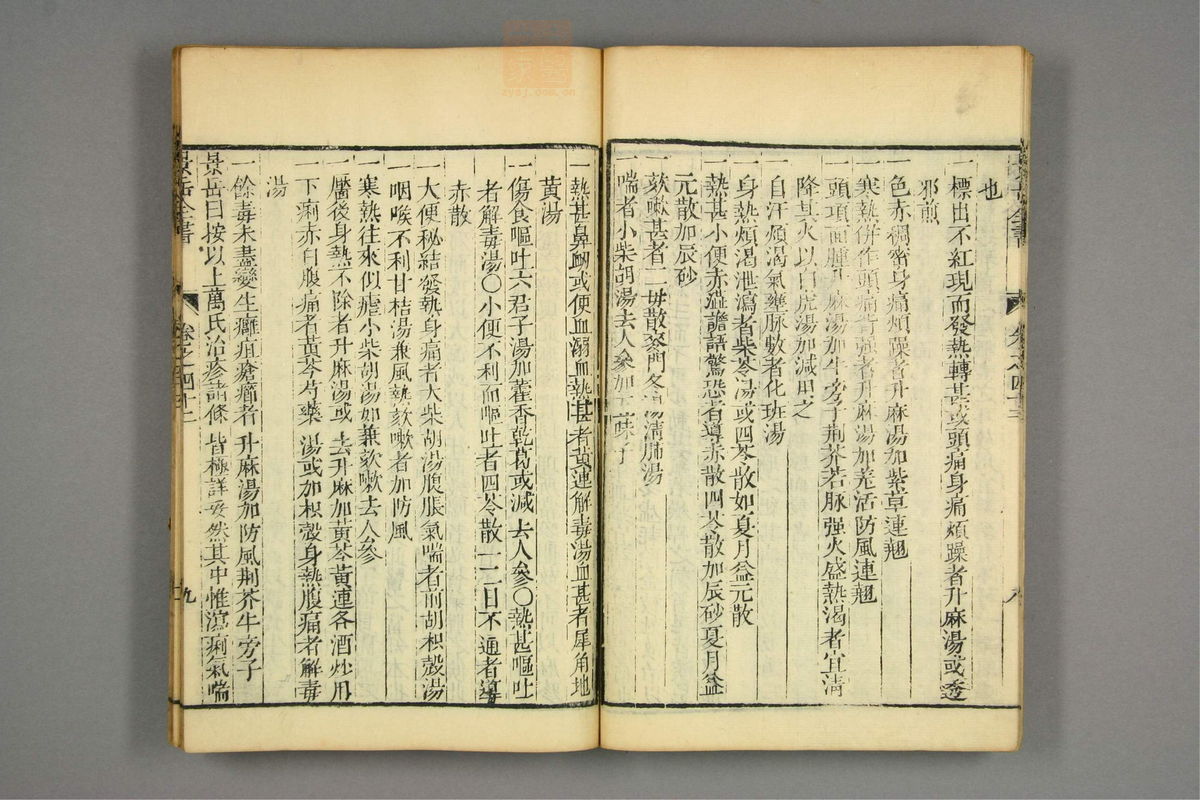 也
一標出不紅現而發熱轉甚或頭痛身痛煩躁者升麻湯或透
邪煎
一色赤稠密身痛煩躁者升麻湯加紫草連翹
一寒熱併作頭痛背强者升麻湯加羌活防風連翹
一頭項面腫升麻湯加牛旁子荆芥若脉强火盛熱渴者宜清
降其火以白虎湯加減用之
一自汗煩渴氣壅脉數者化班湯
一身熱煩渴泄瀉者柴苓湯或四苓散如夏月益元散
一熱甚小便赤澁譫語驚恐者導赤散四苓散加辰砂夏月益
元散加辰砂
一欬嗽甚者二母散麥門冬湯清肺湯
一喘者小柴胡湯去人參加五味子
一熱甚鼻衂或便血溺血熱甚者黃連解毒湯血甚者犀角地
黃湯
一傷食嘔吐六君子湯加藿香乾葛或減去人參〇熱甚嘔吐
者解毒湯〇小便不利而嘔吐者四苓散一二日不通者導
赤散
一大便秘結發熱身痛者大柴胡湯腹脹氣喘者前胡枳殼湯
一咽喉不利甘桔湯兼風熱欬嗽者加防風
一寒熱往來似瘧小柴胡湯如兼欬嗽去人參
一靨後身熱不除者升麻湯或去升麻加黃芩黃連各酒炒用
一下痢赤白腹痛者黃芩芍藥湯或加枳殼身熱腹痛者解毒
湯
一餘毒未盡變生癰疽瘡癤者升麻湯加防風荆芥牛旁子
景岳曰按以上萬氏治疹諸條皆極詳妥然其中惟瀉痢氣喘
景岳全書
卷之四十三
九